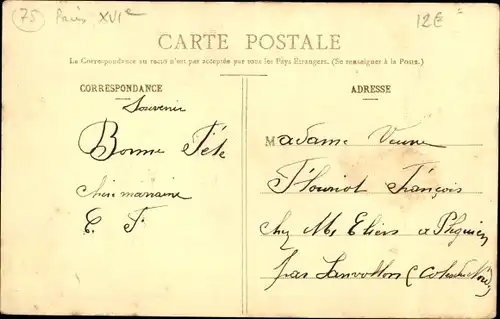 75 Paris XVIe
12E
CARTE POSTALE
La Correspondance au recto n'est pas acceptée par tous les Pays Étrangers. (Se renseigner à la Poste).
CORRESPONDANCE
ADRESSE
Souvenir
Bonne Fête
chère marraine
C. F.
Madame Veuve
Flouriot François
chez Mr
par Lanvollon (Cotes du Nord)